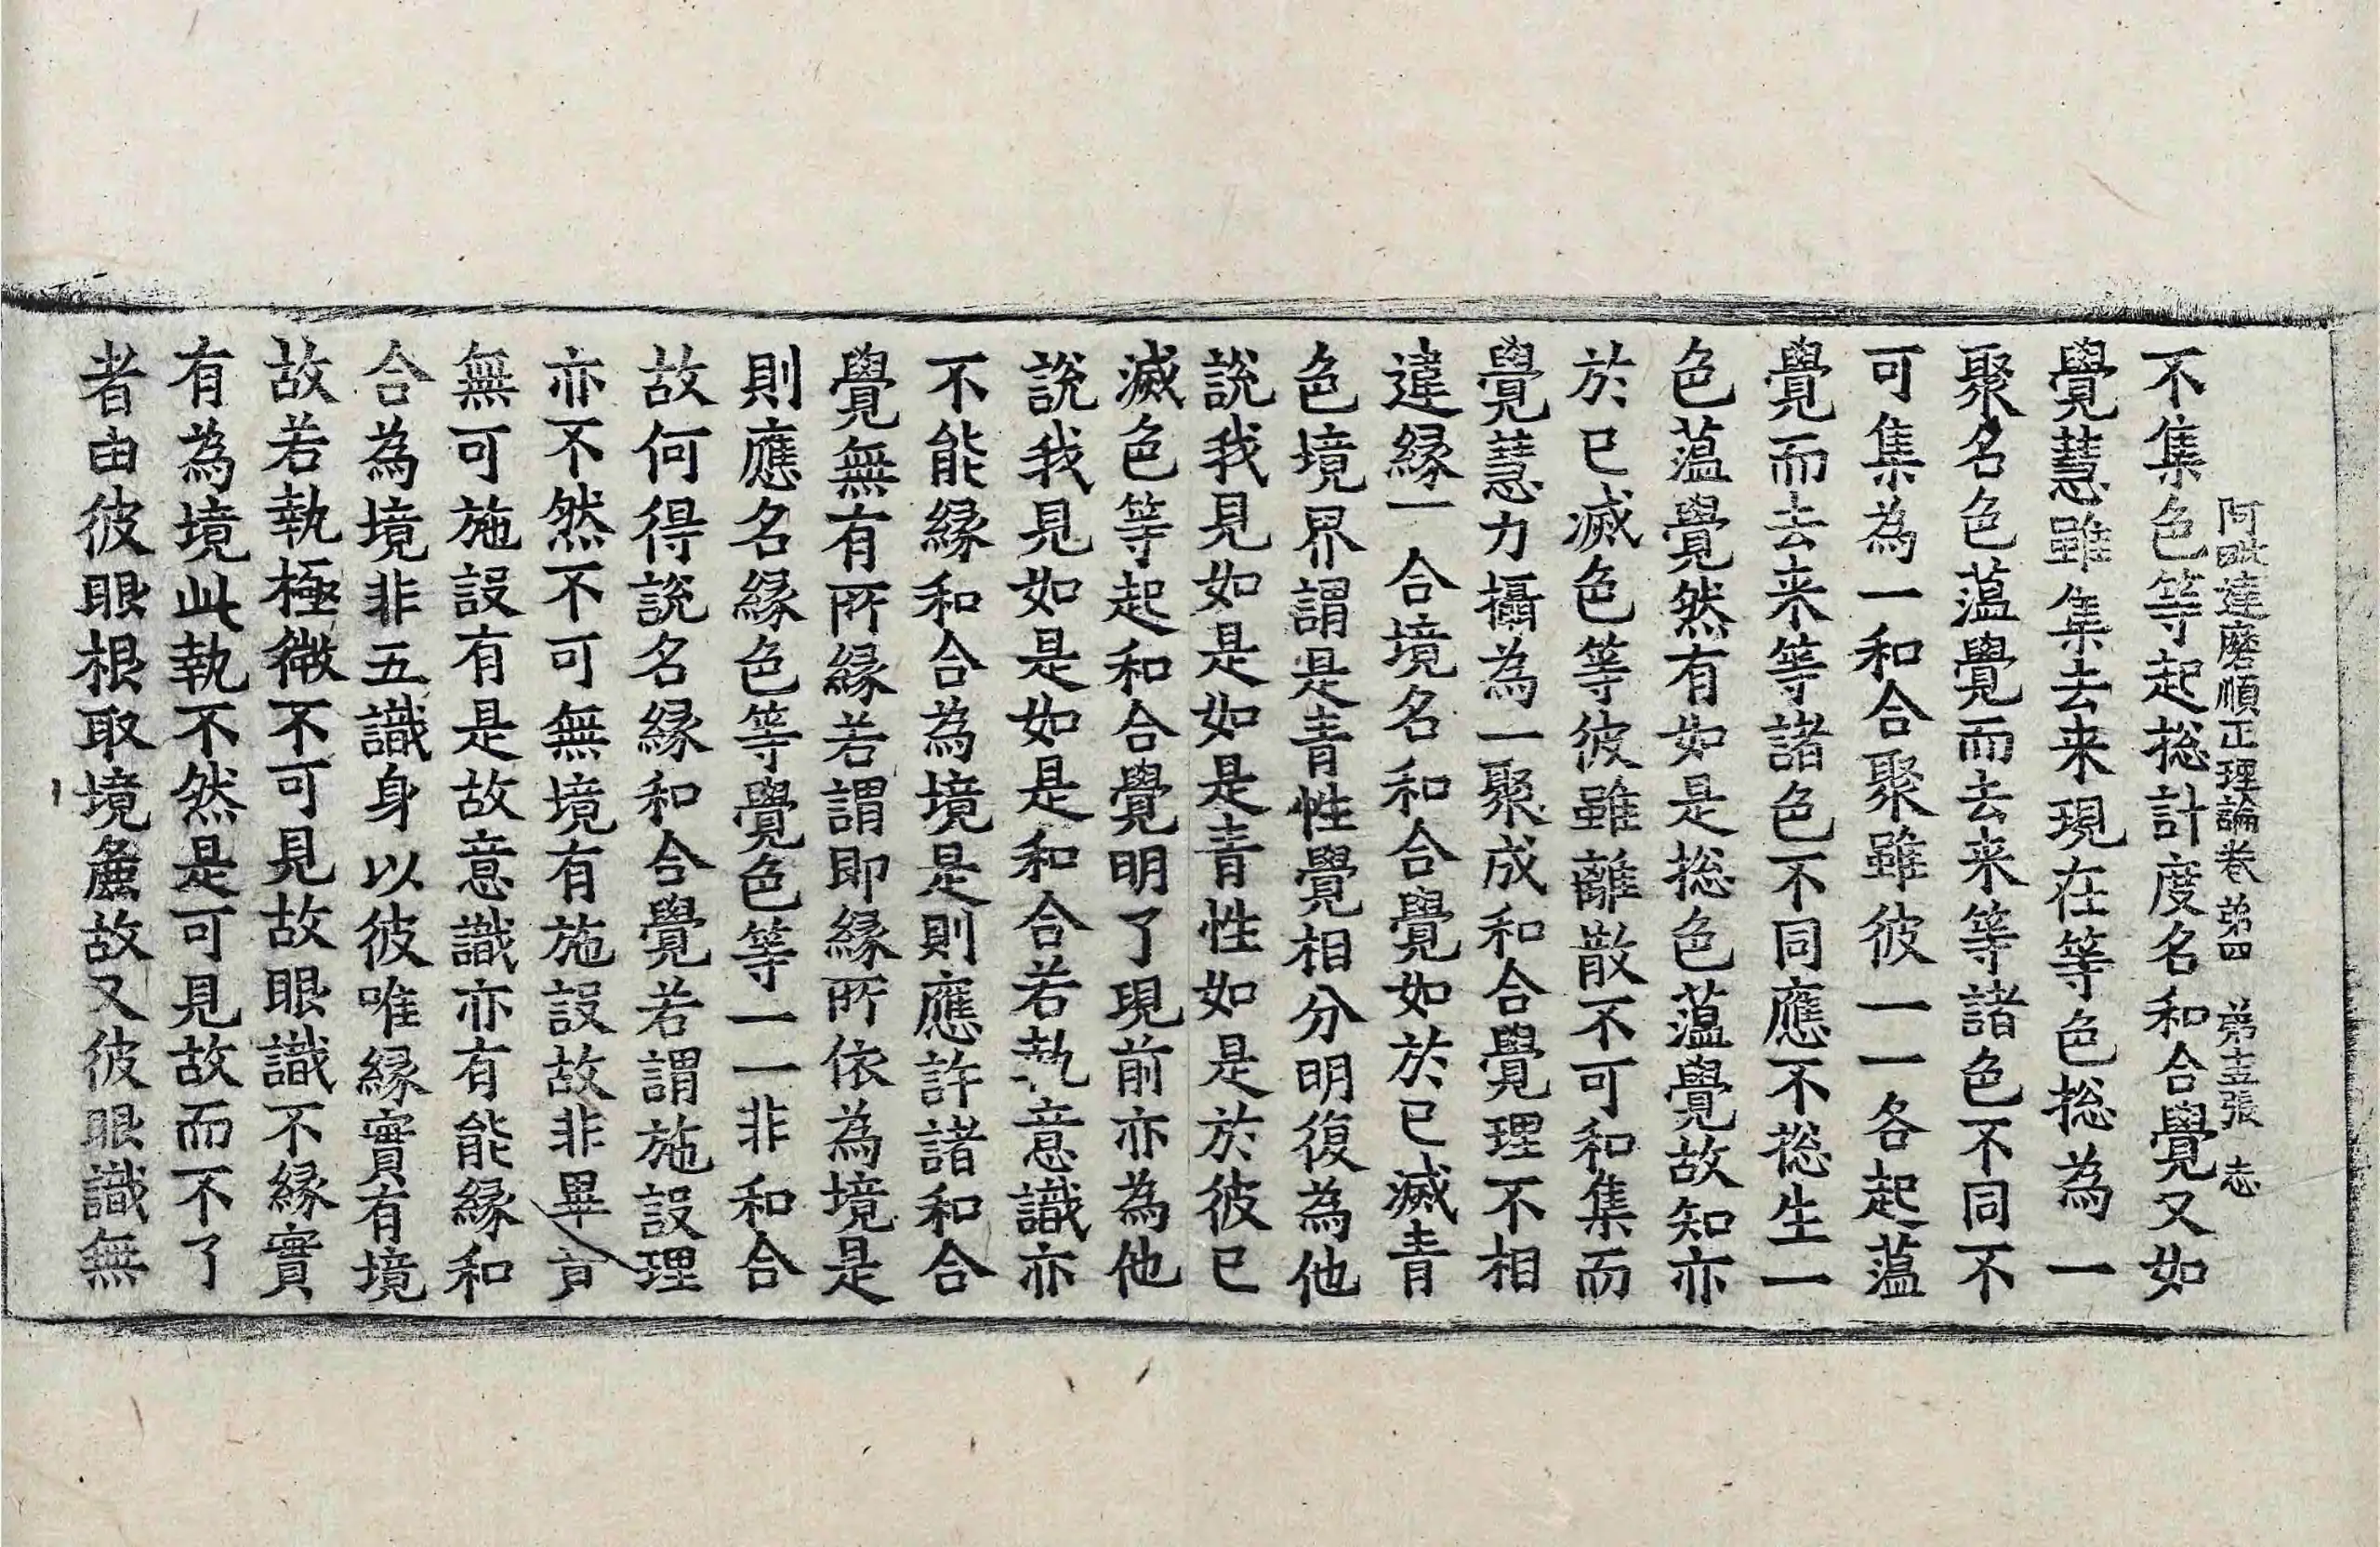 阿毗達磨順正理論卷弟四　弟十三張　志
不集色等起捴計度名和合覺又如
覺慧雖集去来現在等色捴為一
聚名色蕰覺而去来等諸色不同不
可集為一和合聚雖彼一一各起蕰
覺而去来等諸色不同應不捴生一
色蕰覺然有如是捴色蕰覺故知亦
於已滅色等彼雖離散不可和集而
覺慧力攝為一聚成和合覺理不相
違縁一合境名和合覺如於已滅青
色境界謂是青性覺相分明復為他
說我見如是如是青性如是於彼已
滅色等起和合覺明了現前亦為他
說我見如是如是和合若執意識亦
不能縁和合為境是則應許諸和合
覺無有所縁若謂即縁所依為境是
則應名縁色等覺色等一一非和合
故何得說名縁和合覺若謂施設理
亦不然不可無境有施設故非畢
無可施設有是故意識亦有能縁和
合為境非五識身以彼唯縁實有境
故若執極微不可見故眼識不縁實
有為境此執不然是可見故而不了
者由彼眼根取境麁故又彼眼識無